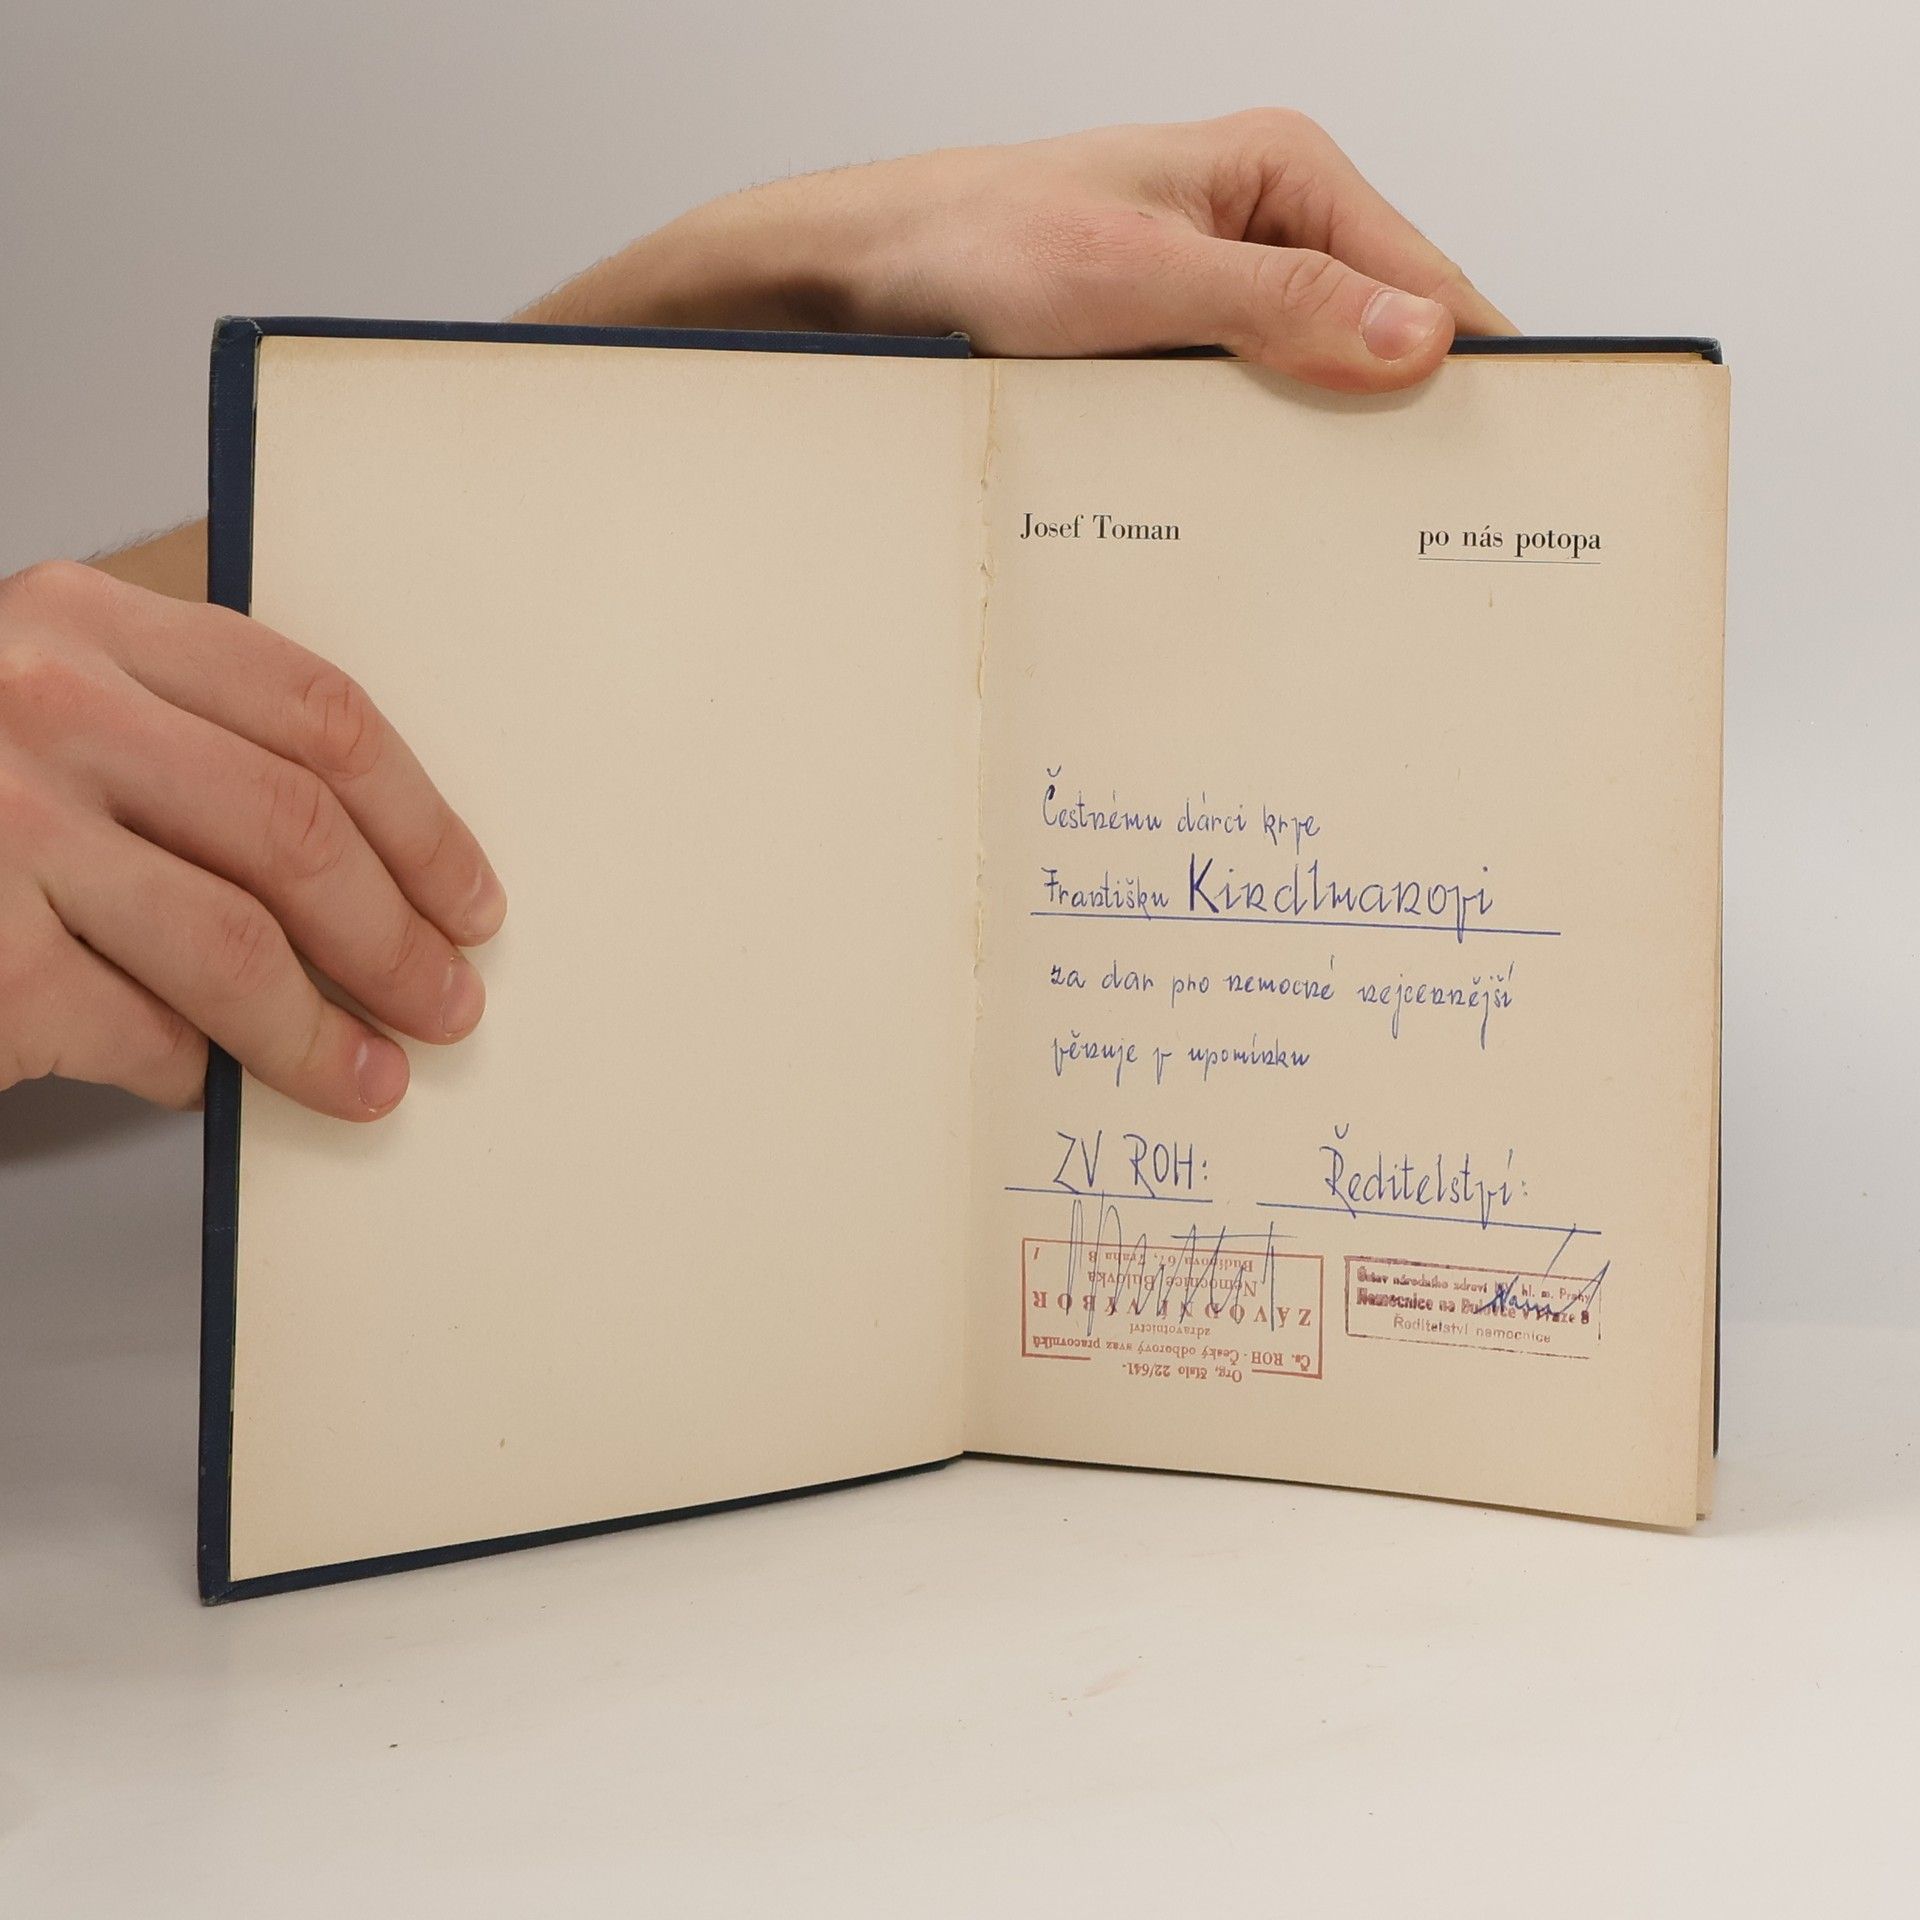 Josef Toman
po nás potopa
Čestnému dárci krve
Františku Kindlmanovi
za dar pro nemocné nejcennější
věnuje v upomínku
ZV ROH:
Ředitelství:
Org. číslo 22/641-
Čs. ROH - Český odborový svaz pracovníků
zdravotnictví
ZÁVODNÍ VÝBOR
Nemocnice Bulovka
Budínova 67, Praha 8
1
Ústav národního zdraví hl. m. Prahy
Nemocnice na Bulovce v Praze 8
Ředitelství nemocnice